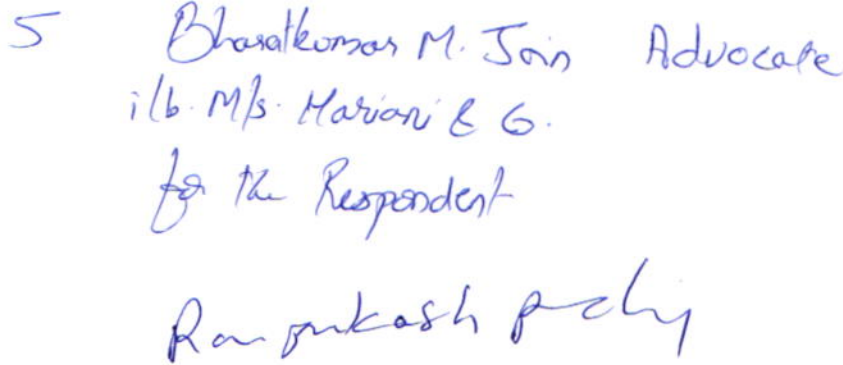 5 Bharatkumar M. Jain Advocate
i/b. M/s. Mariani & Co.
for the Respondent
Ramprakash